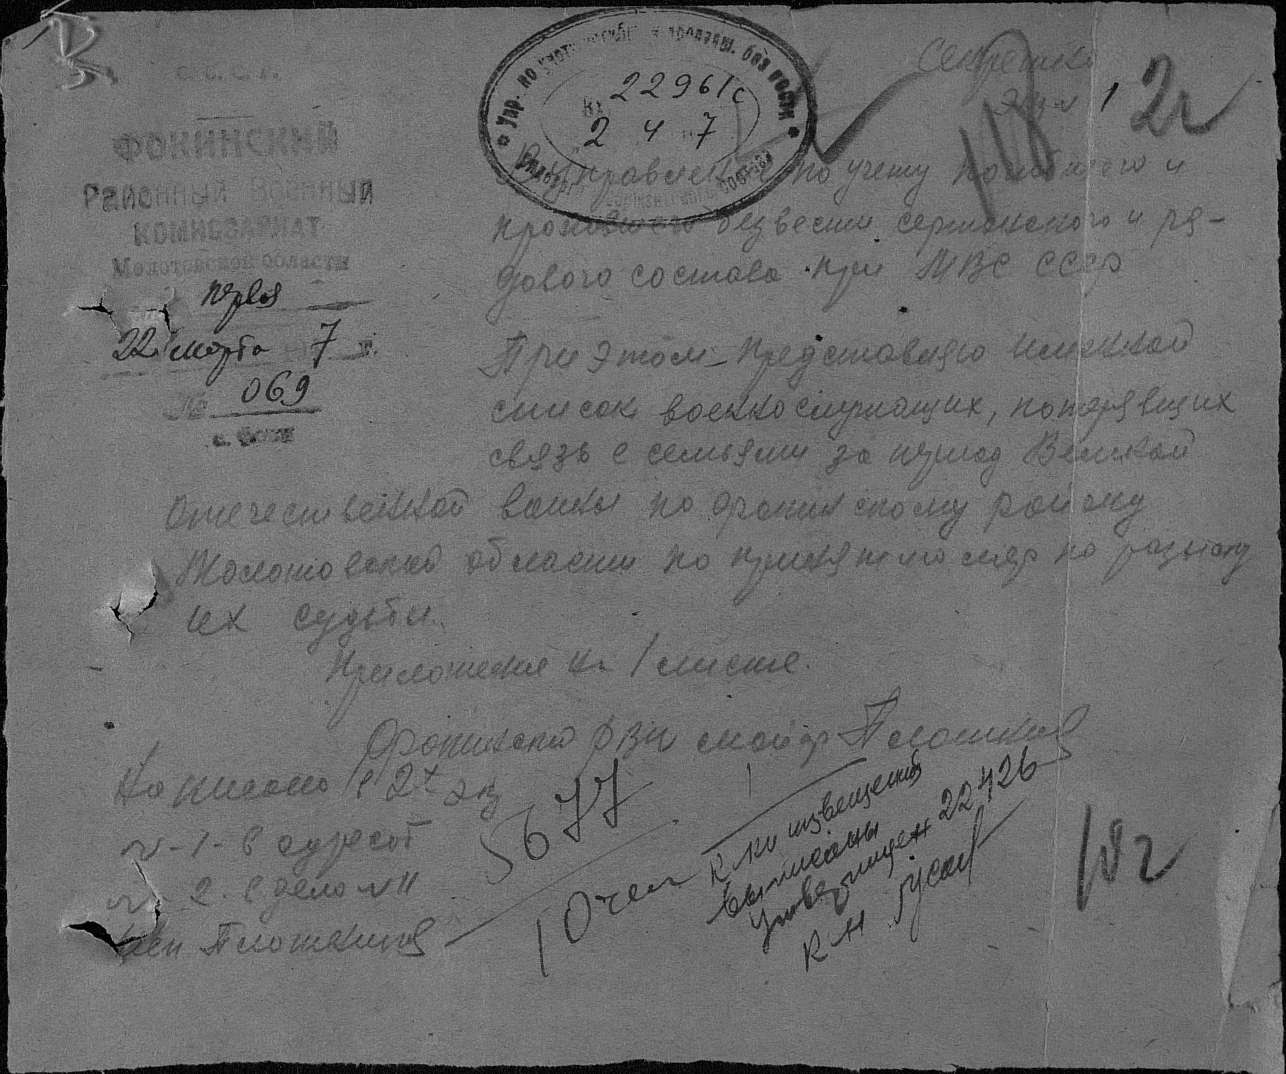 Секретно
Экз № 1
2г
Упр. по учету погибш. и пропавш. без вести
Вх 22961с
2 4 7
С. С. С. Р.
ФОКИНСКИЙ
Районный Военный
КОМИССАРИАТ
Молотовской области
22 марта 7 г.
№ 069
с. Фоки
В управление по учету погибшего и
пропавшего без вести сержантского и ря-
дового состава при МВС СССР
При этом представляю именной
список военнослужащих, потерявших
связь с семьями за период Великой
Отечественной войны по Фокинскому району
Молотовской области на принятие мер по розыску
их судьбы.
Приложение на 1 листе.
Фокинский РВК майор Плотников
Написано в 2х экз
№-1-в адресат
№-2-в дело №11
5677
10 чел
К-ки извещений
выписаны
22426
К-н Гусак
10г